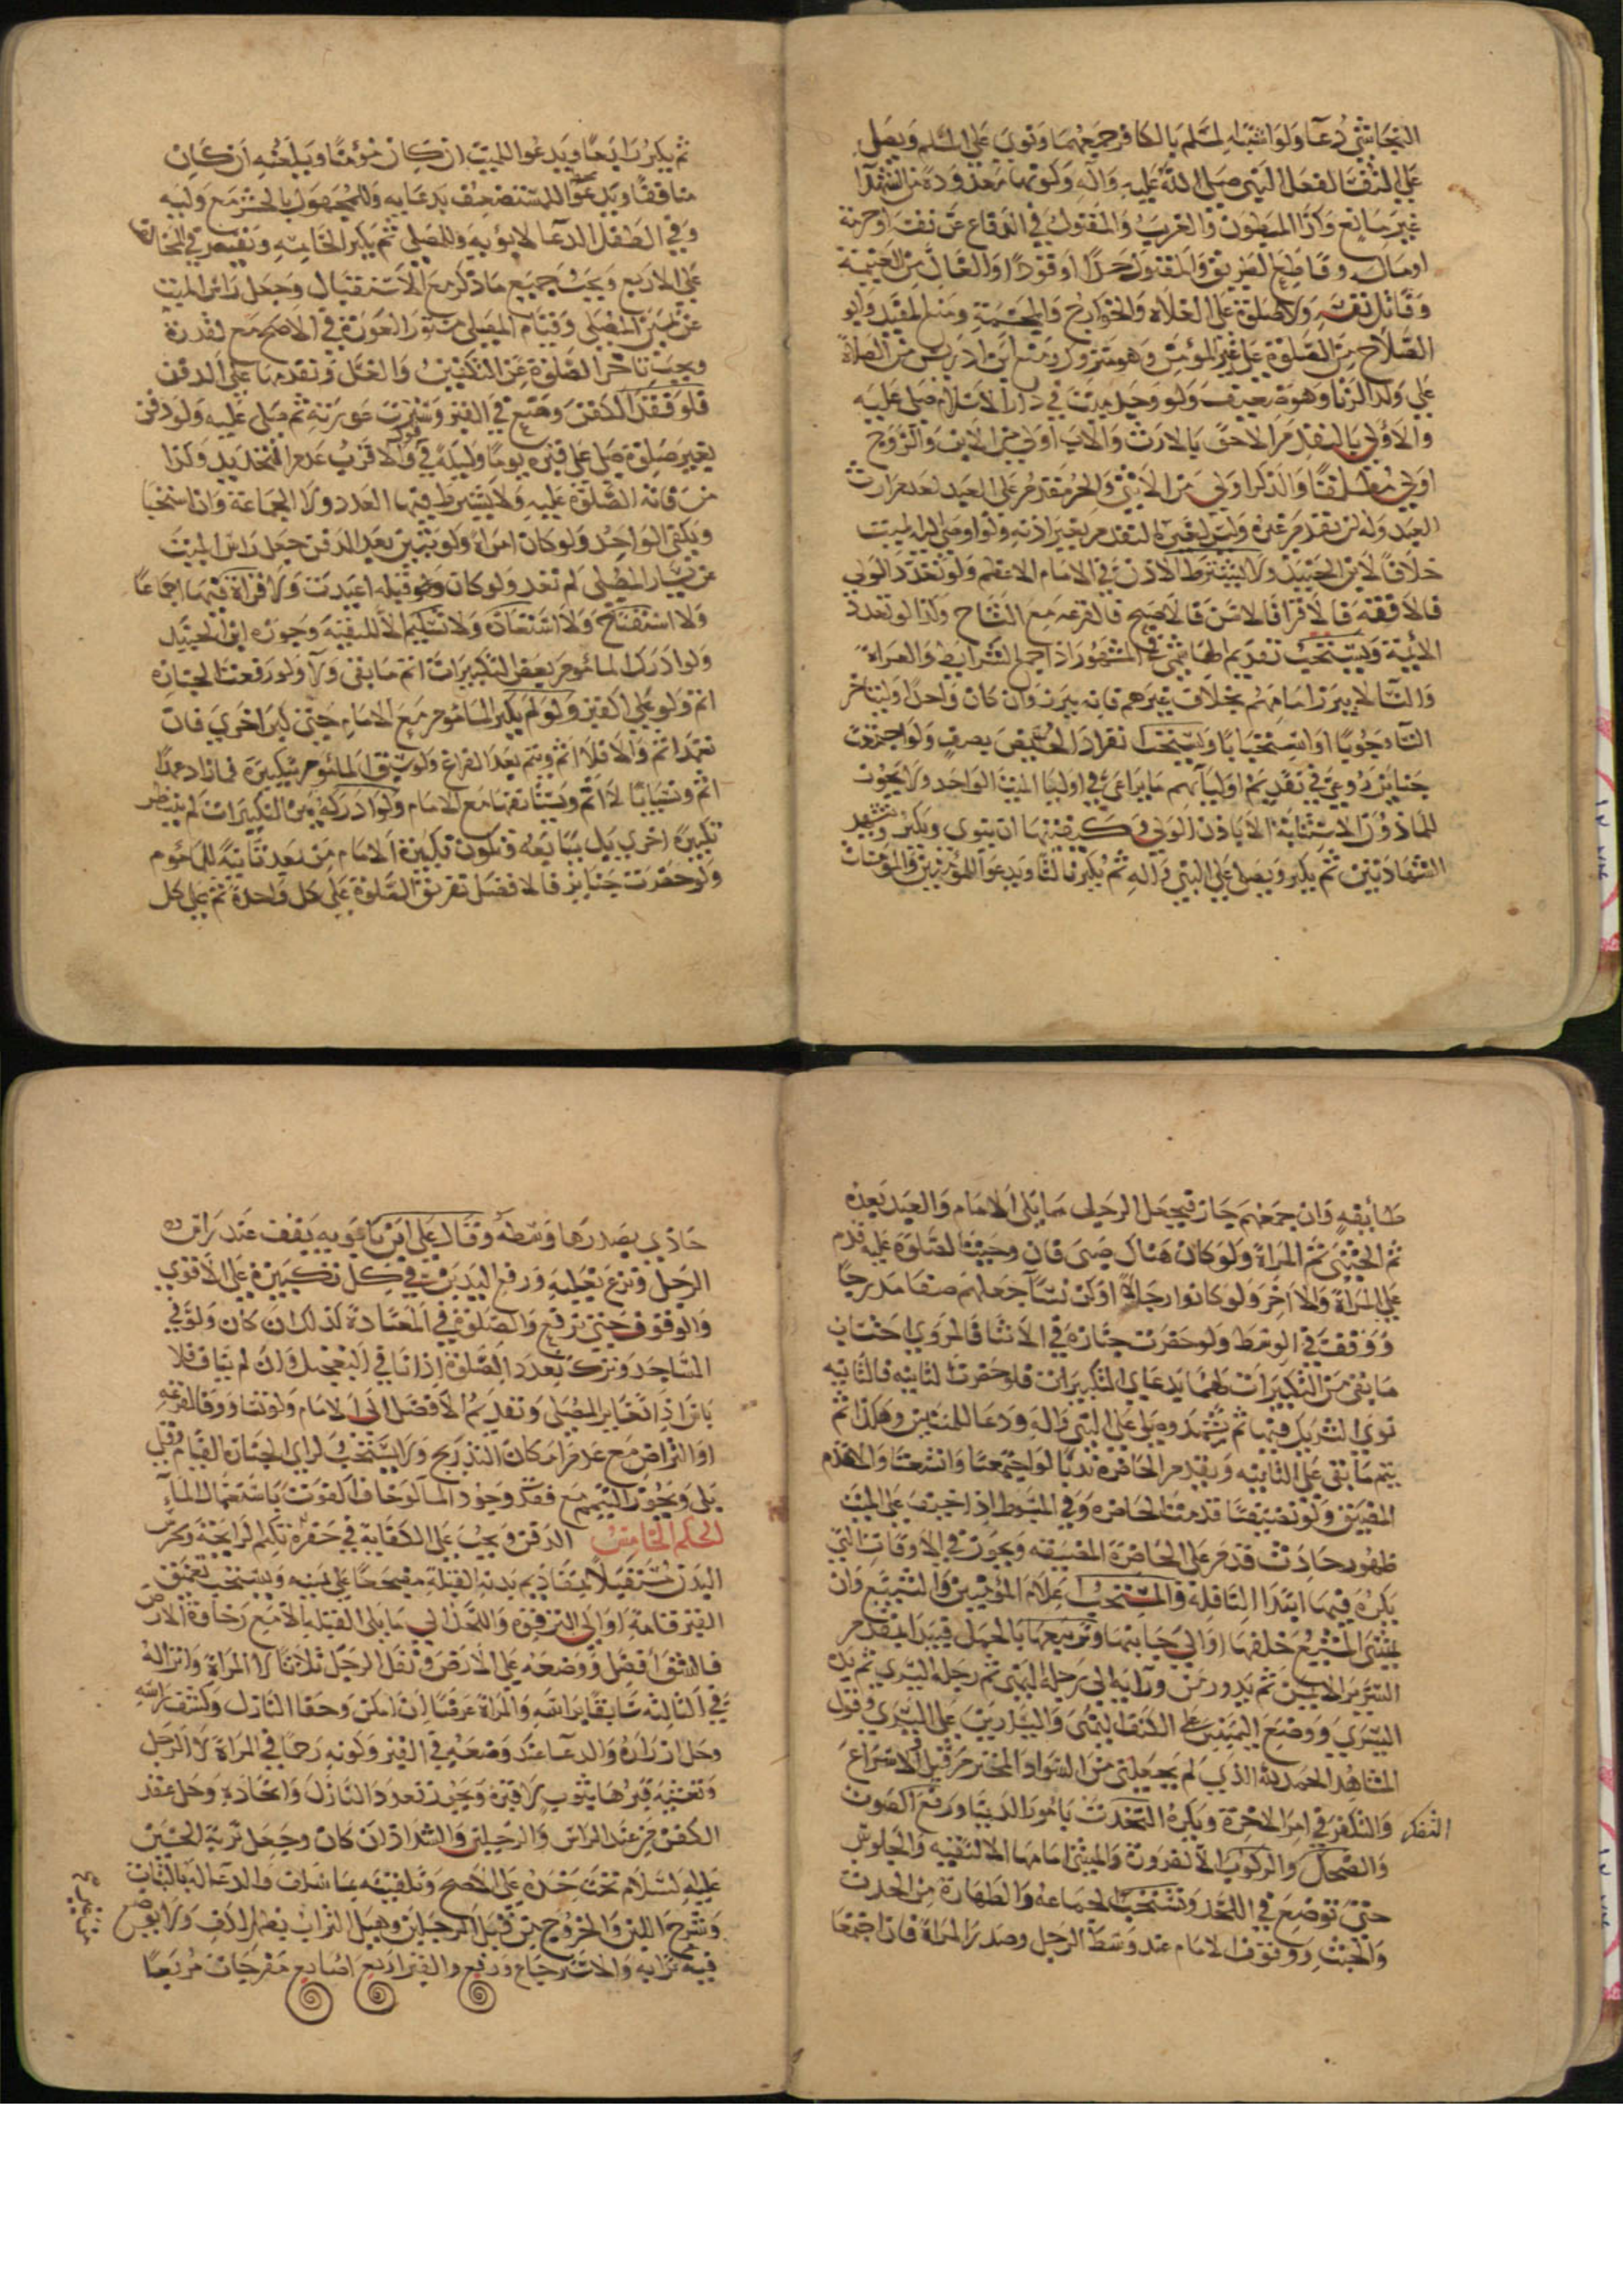 النجاشي دعآ ولو اشتبه المسلم بالكافر جمعهما ونوى على المسلم ويصلى
على النفسا لفعل النبي صلى الله عليه وآله وكونها معدودة من الشهدآ
غير مانع وكذا المبطون والغريب والمقتول في الدفاع عن نفسه او حرمة
او مال وقاطع الطريق والمقتول حدا او قودا والغال من الغنيمة
وقاتل نفسه ولا صلوة على الغلاه والخوارج والمجسمة ومنع المفيد وابو
الصلاح من الصلوة على غير المؤمن وهو متروك ومنع ابن ادريس من الصلاة
على ولد الزنا وهو ضعيف ولو وجد ميت في دار الاسلام صلى عليه
والاولى بالتقدم الاحق بالارث والاب اولى من الابن والزوج
اولى مطلقا والذكر اولى من الانثى والحر مقدم على العبد لعدم ارث
العبد وله ان تقدم غيره وليس لغيره التقدم بغير اذنه ولو اوصى اليه الميت
خلافا لابن الجنيد ولا يشترط الاذن في الامام الاعظم ولو تعدد الولي
فالافقه فالاقرا فالاسن فالاصبح فالقرعه مع التشاح وكذا لو تعدد
الائمة ويستحب تقديم الهاشمي في المشهور اذا جمع الشرايط والعراة
والنسآ لا يبرز امامهم بخلاف غيرهم فانه يبرز وان كان واحدا وليتاخر
النسآ وجوبا او استحبابا ويستحب انفراد الحايض بصف ولو اجتمعت
جنايز روعي في تقديم اوليآئهم ما يراعى في اوليا الميت الواحد ولا يجوز
للماذون الاستنابة الا باذن الولي وكيفيتها ان ينوي ويكبر ويتشهد
الشهادتين ثم يكبر ويصلي على النبي وآله ثم يكبر ثالثا ويدعو للمؤمنين والمؤمنات
ثم يكبر رابعا ويدعو للميت ان كان مؤمنا ويلعنه ان كان
منافقا ويدعوا للمستضعف بدعايه وللمجهول بالحشر مع وليه
وفي الطفل الدعآ لابويه وللمصلي ثم يكبر الخامسه ويقتصر في المخالف
على الاربع ويجب جميع ما ذكر مع الاستقبال وجعل راس الميت
عن يمين المصلى وقيام المصلي مستور العورة في الاصح مع القدرة
ويجب تاخر الصلوة عن التكفين والغسل وتقدمها على الدفن
فلو فقد الكفن وضع في القبر وسترت عورته ثم صلى عليه ولو دفن
بغير صلوة صلى على قبره يوما وليلة في قول والاقرب عدم التحديد وكذا
من فاته الصلوة عليه ولا يشترط فيها العدد ولا الجماعة وان استحبا
ويكفي الواحد ولو كان امراة ولو تبين بعد الدفن جعل راس الميت
عن يسار المصلى لم تعد ولو كان وهو قبله اعيدت ولا قراة فيها اجماعا
ولا استفتاح ولا استعاذة ولا تسليم الا للتقية وجوزه ابن الجنيد
ولو ادرك الماموم بعض التكبيرات اتم ما بقى ولآ ولو رفعت الجنازه
اتم ولو على القبر ولو لم يكبر الماموم مع الامام حتى كبر اخرى فان
تعمد اثم والا فلا اثم ويتم بعد الفراغ ولو سبق الماموم بتكبيرة فما زاد عمدا
اثم ونسيانا لا اثم ويستانفها مع الامام ولو ادركه بين التكبيرات لم ينتظر
تكبيرة اخرى بل يتابعه وتكون تكبيرة الامام من بعد ثانية للماموم
ولو حضرت جنايز فالافضل تفريق الصلوة على كل واحدة ثم على كل
طايفه وان جمعهم جاز فيجعل الرجل مما يلى الامام والعبد بعده
ثم الخنثى ثم المراة ولو كان هناك صبى فان وجبت الصلوة عليه قدم
على المراة والا اخر ولو كانوا رجالا او كن نسآ جعلهم صفا مدرجا
ووقف في الوسط ولو حضرت جنازة في الاثنا فالمروي احتساب
ما بقى من التكبيرات لهما يدعاى التكبيرات فلو حضرت الثانيه فالثانيه
نوى التشريك فيها ثم تشهد وصلى على النبي وآله ودعا للميتين وهكذا ثم
يتم ما بقى على الثانيه ويقدم الحاضرة ندبا لو اجتمعتا واتسعتا والا قدم
المضيق ولو تضيقتا قدمت الحاضره وفي المبسوط اذا خيف على الميت
ظهور حادث قدم على الحاضرة المضيقه ويجوز في الاوقات التي
يكره فيها ابتدآ النافلة والمستحب اعلام المؤمنين والتشييع وان
يمشى المشيع خلفها او الى جانبيها وتربيعها بالحمل فيبدا بمقدم
السرير الايمن ثم يدور من ورآيه الى رجله اليمنى ثم رجله اليسرى ثم يده
اليسرى ووضع اليمينين على الكتف اليمنى واليسارين على اليسرى وقول
المشاهد الحمد لله الذي لم يجعلنى من السواد المخترم قيل والاسراع
والتفكر في امر الاخرة ويكره التحدث بامور الدنيا ورفع الصوت
التفكر
والضحك والركوب الا لضرورة والمشى امامها الا لتقيه والجلوس
حتى توضع في اللحد وتستحب الجماعه والطهارة من الحدث
والخبث ووقوف الامام عند وسط الرجل وصدر المراة فان اجتمعا
حاذى بصدرها وسطه وقال على ابن بابويه يقف عند راس
الرجل ونزع نعليه ورفع اليدين في كل تكبيرة على الاقوى
والوقوف حتى ترفع والصلوة في المعتادة لذلك ان كان ولو في
المساجد وترك تعدد الصلوة اذا نافى التعجيل وان لم يناف فلا
باس اذا تغاير المصلى وتقديم الافضل الى الامام ولو تساووا فالقرعه
او التراض مع عدم امكان التدريج ولا يستحب لراي الجنازة القيام وقيل
بلى ويجوز التيمم مع فقد وجود المآ لو خاف الفوت باستعمال المآء
الحكم الخامس الدفن ويجب على الكفاية في حفرة تكتم الرايحة وتحرس
البدن مستقبلا بمقاديم بدنه القبلة مضجعا على يمينه ويستحب تعميق
القبر قامة او الى الترقوة واللحد الى ما يلى القبله الا مع رخاوة الارض
فالشق افضل ووضعه على الارض ونقل الرجل ثلاثا لا المراة وانزاله
في الثالثه سابقا براسه والمراة عرضا ان امكن وحفا النازل وكشف راسه
وحل ازراره والدعآ عند وضعه في القبر وكونه رحما في المراة لا الرجل
وتغشية قبرها بثوب لا قبره ويجوز تعدد النازل واتحاده وحل عقد
الكفن من عند الراس والرجلين والشداد ان كان وجعل تربة الحسين
عليه السلام تحت خده على الاصح وتلقينه والدعآ له بالثبات
وشرج اللبن والخروج من قبل الرجلين وهيل التراب بظهر الاكف ولا يوضع
فيه ترابه والاسترجاع ورفع القبر اربع اصابع مفرجات مربعا